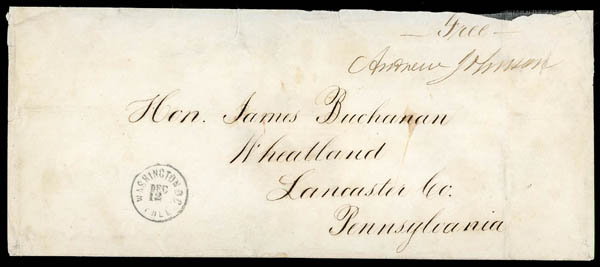 — Free —
Andrew Johnson
Hon. James Buchanan
Wheatland
Lancaster Co.
Pennsylvania
WASHINGTON D.C.
DEC
12
FREE